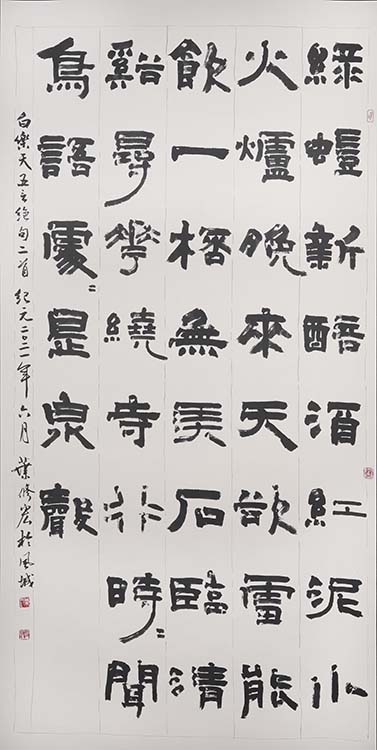 綠螘新醅酒紅泥小
火爐晚來天欲雪能
飲一桮無弄石臨清
谿尋花繞寺行時〻聞
鳥語處〻是泉聲
白樂天五言絕句二首 紀元二〇二一年 六月 葉修宏於風城